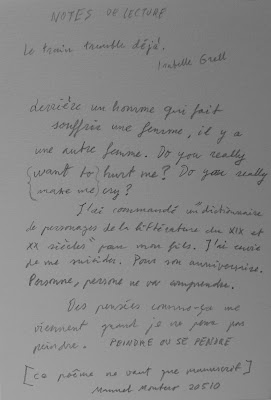 NOTES DE LECTURE
Le train tremble déjà.
Isabelle Grell
derrière un homme qui fait
souffrir une femme, il y a
une autre femme. Do you really
(want to) hurt me? Do you really
(make me) cry?
J'ai commandé un "dictionnaire
de personages de la littérature du XIX et
XX siècles" pour mon fils. J'ai envie
de me suicider. Pour son anniversaire.
Personne, persone ne va comprendre.
Des pensées comme-ça me
viennent quand je ne peux pas
peindre. PEINDRE OU SE PENDRE
[ce poème ne vaut que manuscrit]
Manuel Montero 20510